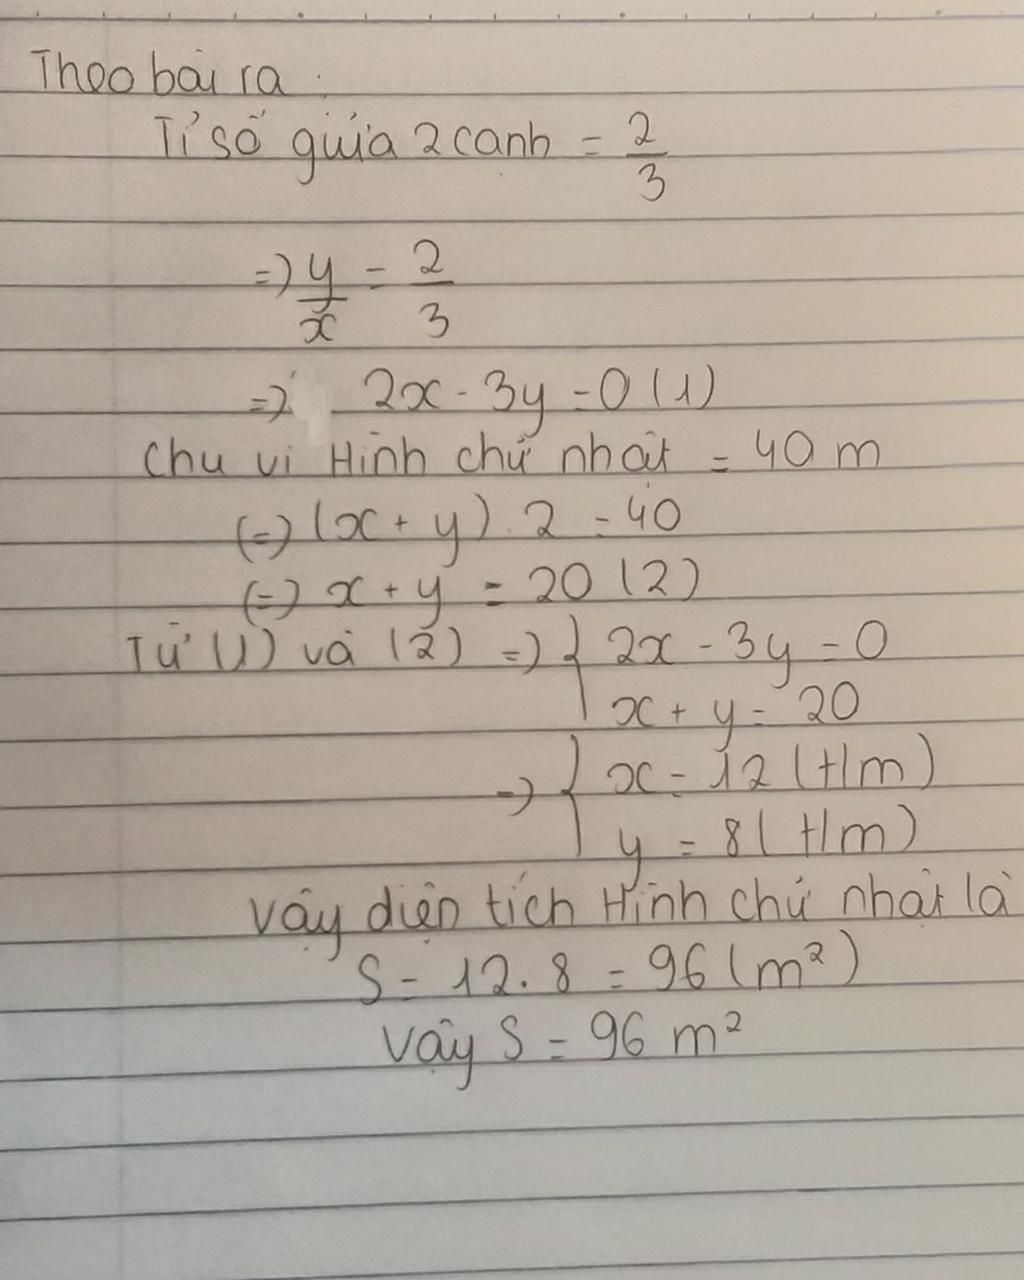 Theo bài ra :
Tỉ số giữa 2 cạnh = 2/3
=> y/x = 2/3
=> 2x - 3y = 0 (1)
Chu vi Hình chữ nhật = 40 m
(=) (x + y) . 2 = 40
(=) x + y = 20 (2)
Từ (1) và (2) => { 2x - 3y = 0
x + y = 20
=> { x = 12 (t/m)
y = 8 (t/m)
Vậy diện tích Hình chữ nhật là
S = 12 . 8 = 96 (m²)
Vậy S = 96 m²